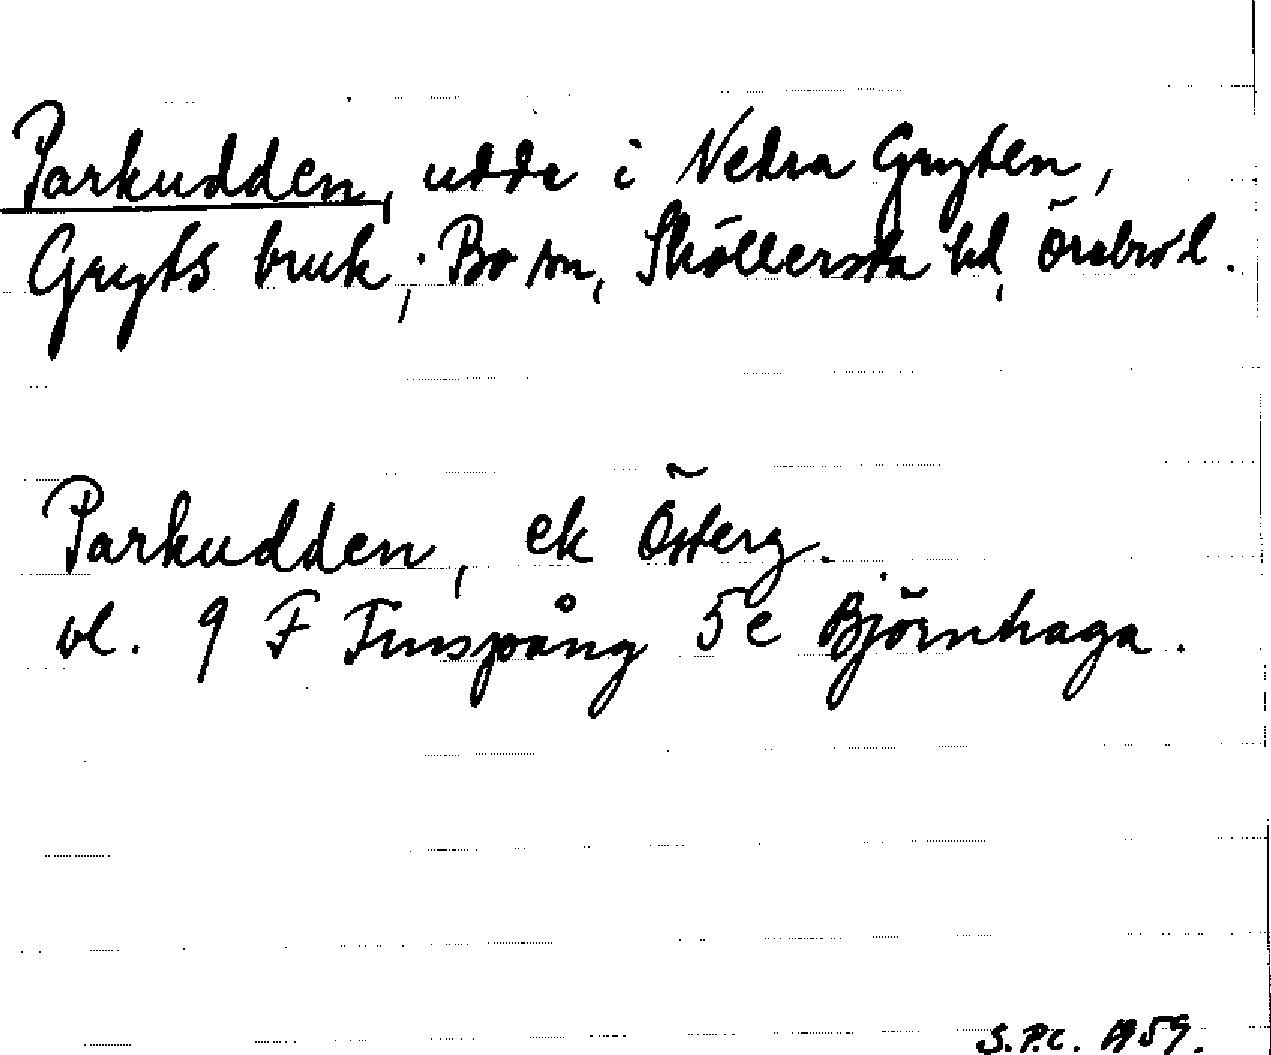 Parkudden, udde i Nedra Gryten,
Gryts bruk; Bo sn, Sköllersta hd, Örebro l.
Parkudden, ek Österg.
bl. 9 F Finspång 5e Björnhaga.
S.P.C. 1959.